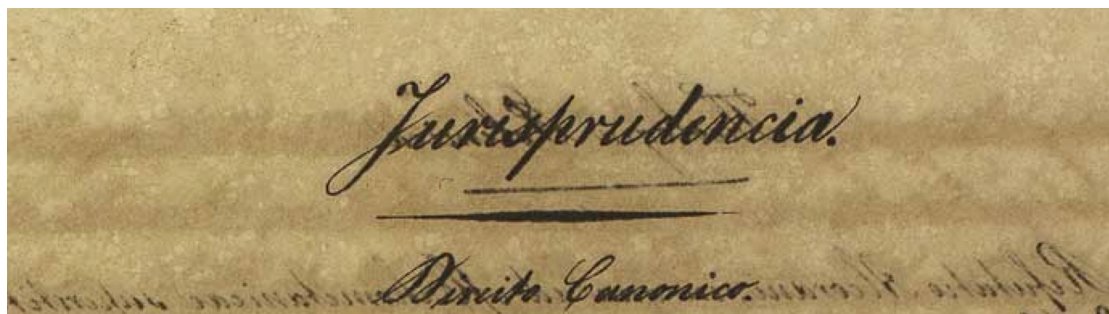 Jurisprudencia.
Direito Canonico.